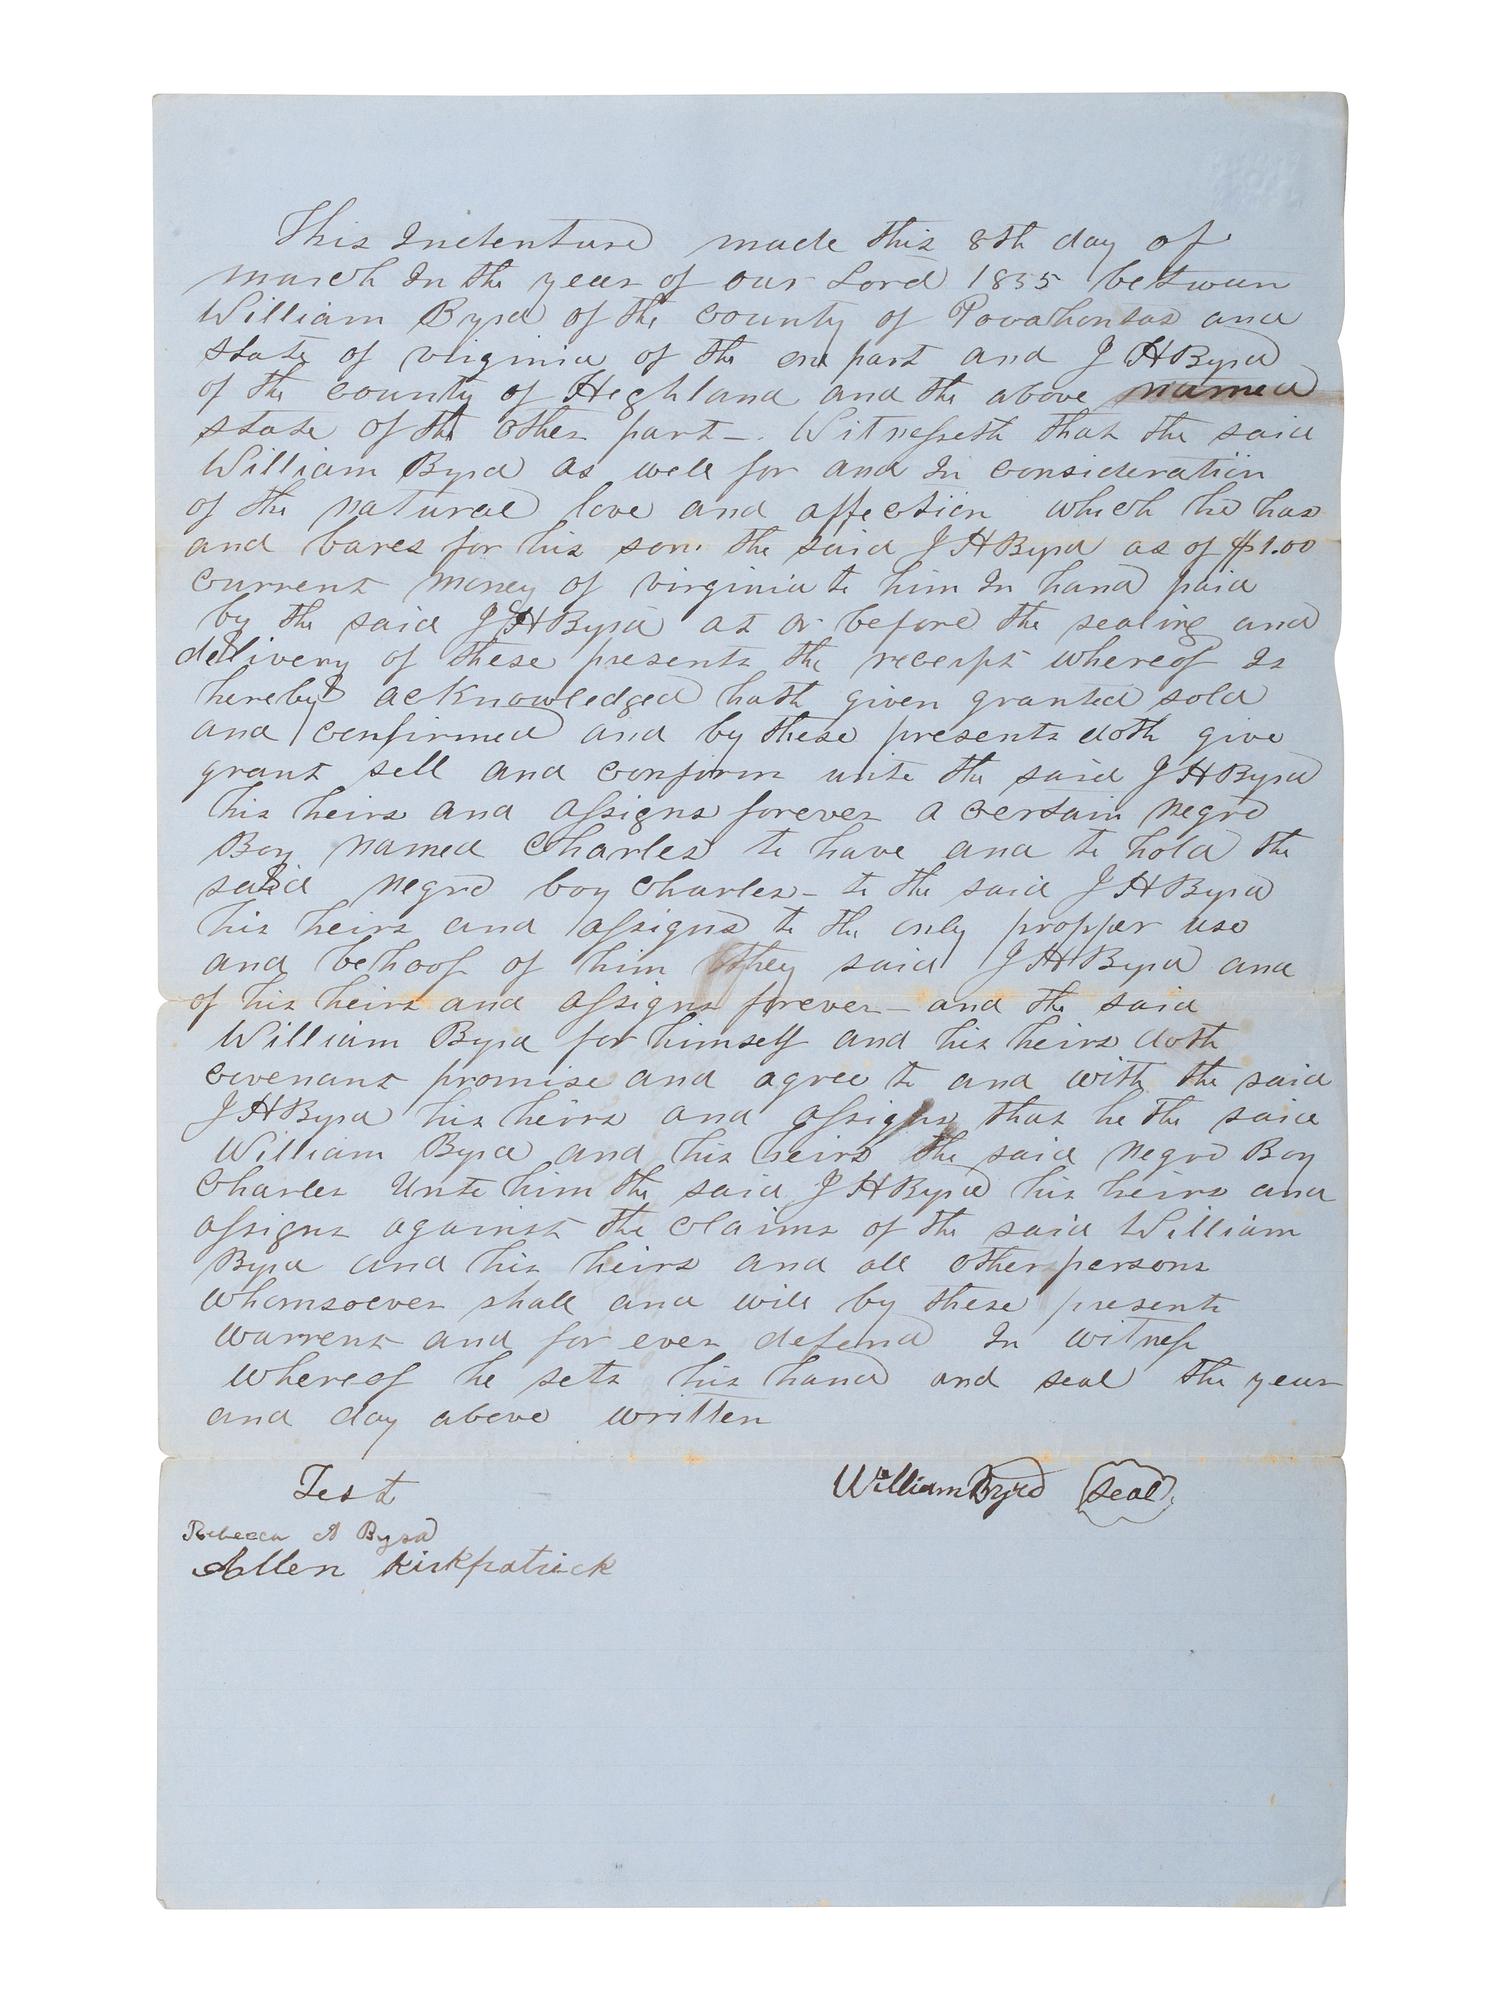 This Indenture made this 8th day of
march In the year of our Lord 1855 between
William Byrd of the county of Pocahontas and
state of virginia of the one part and J H Byrd
of the county of Heghland and the above named
state of the other part - Witnesseth that the said
William Byrd as well for and In consideration
of the natural love and affection which he has
and bares for his son the said J H Byrd as of $1.00
current money of virginia to him In hand paid
by the said J H Byrd at or before the sealing and
delivery of these presents the receipt whereof Is
hereby acknowledged hath given granted sold
and confirmed and by these presents doth give
grant sell and confirm unto the said J H Byrd
his heirs and assigns forever a certain negro
Boy named Charles to have and to hold the
said negro boy Charles - to the said J H Byrd
his heirs and assigns to the only propper use
and behoof of him they said J H Byrd and
of his heirs and assigns forever - and the said
William Byrd for himself and his heirs doth
covenant promise and agree to and with the said
J H Byrd his heirs and assigns that he the said
William Byrd and his heirs the said negro Boy
Charles Unto him the said J H Byrd his heirs and
assigns against the claims of the said William
Byrd and his heirs and all other persons
whomsoever shall and will by these presents
warrent and for ever defend In witness
whereof he sets his hand and seal the year
and day above written
Test William Byrd Seal
Rebecca A Byrd
Allen Kirkpatrick